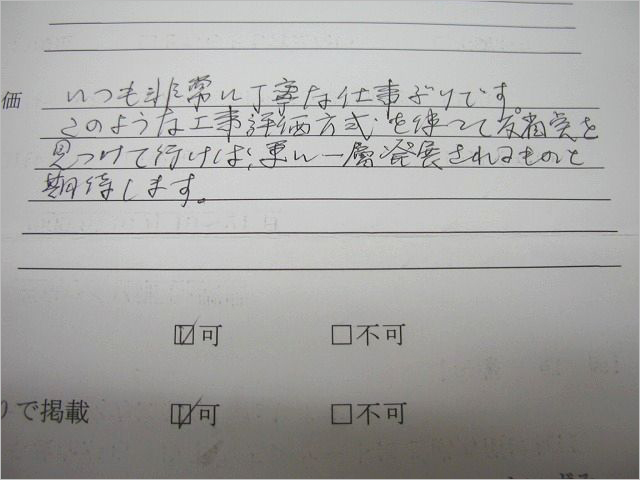 価 いつも非常に丁寧な仕事ぶりです。
このような工事評価方式を使って反省点を
見つけて行けば、更に一層発展されるものと
期待します。
☑可 □不可
で掲載 ☑可 □不可